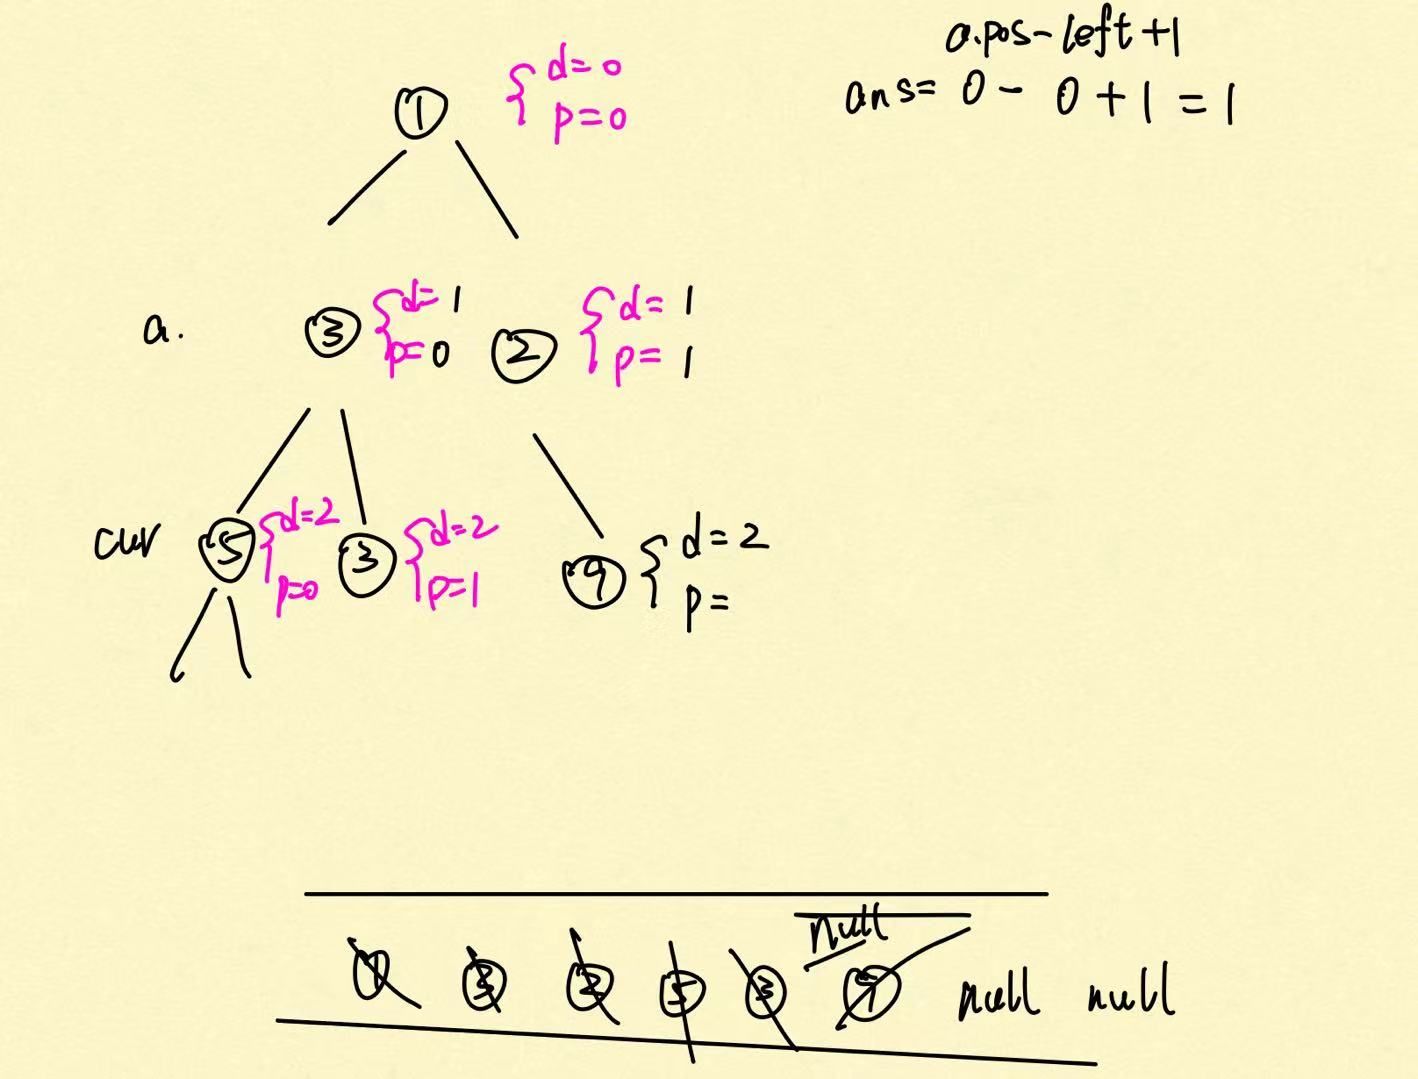 a.pos-left+1
ans= 0 - 0 + 1 = 1
1
d=0
p=0
a.
3
d=1
p=0
2
d=1
p=1
cur
5
d=2
p=0
3
d=2
p=1
9
d=2
p=
null
1 3 2 5 3 9 null null